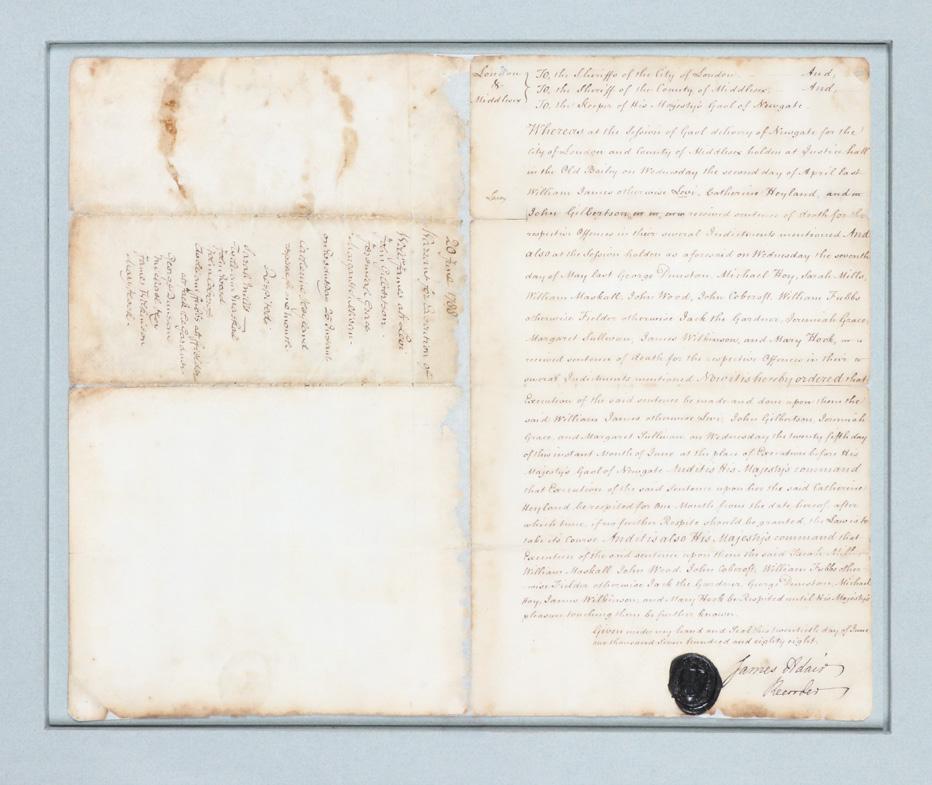 London & Middlesex
To, the Sheriffs of the City of London And,
To, the Sheriff of the County of Middlesex And,
To, the Keeper of His Majesty's Gaol of Newgate
Whereas at the Session of Gaol delivery of Newgate for the
City of London and County of Middlesex holden at Justice hall
in the Old Bailey on Wednesday the second day of April last
William James otherwise Levi, Catherine Heyland, and
John Gilbertson received sentence of death for the
respective Offences in their several Indictments mentioned And
also at the Session holden as aforesaid on Wednesday the seventh
day of May last George Dunston, Michael Hoy, Sarah Mills,
William Maskall, John Wood, John Cobcroft, William Fubbs
otherwise Fielder otherwise Jack the Gardner, Jeremiah Grace,
Margaret Sullivan, James Wilkinson, and Mary Hook,
received sentence of death for the respective Offences in their
several Indictments mentioned Now it is hereby ordered that
Execution of the said sentence be made and done upon them the
said William James otherwise Levi, John Gilbertson, Jeremiah
Grace, and Margaret Sullivan on Wednesday the twenty fifth day
of this instant Month of June at the place of Execution before His
Majesty's Gaol of Newgate And it is His Majesty's command
that Execution of the said Sentence upon her the said Catherine
Heyland be respited for One Month from the date hereof, after
which time, if no further Respite should be granted, the Law is to
take its Course And it is also His Majesty's command that
Execution of the said sentence upon them the said Sarah Mills
William Maskall John Wood, John Cobcroft, William Fubbs other-
wise Fielder otherwise Jack the Gardner George Dunston, Michael
Hoy, James Wilkinson, and Mary Hook be Respited until His Majesty's
pleasure touching them be further known.
Given under my hand and Seal this twentieth day of June
one thousand seven hundred and eighty eight.
James Adair
Recorder
20 June 1788
Warrant for Execution of
Will James als Levi
John Gilbertson
Jeremiah Grace
Margaret Sullivan
on Wednesday 25 Instant
Catherine Heyland
respited one month
Respited
Sarah Mills
William Maskall
John Wood
John Cobcroft
William Fubbs als Fielder
als Jack the Gardner
George Dunston
Michael Hoy
James Wilkinson
Mary Hook